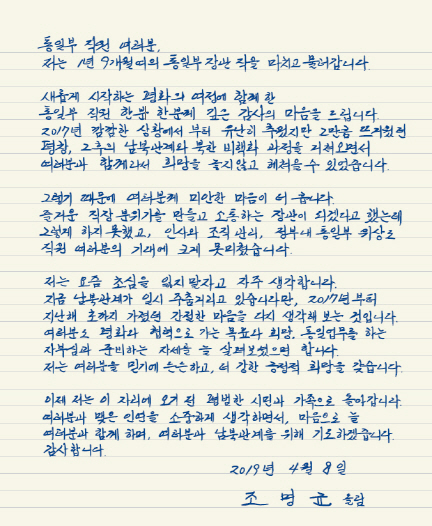 통일부 직원 여러분,
저는 1년 9개월여의 통일부 장관 직을 마치고 물러갑니다.
새롭게 시작하는 평화의 여정에 함께 한
통일부 직원 한분 한분께 깊은 감사의 마음을 드립니다.
2017년 캄캄한 상황에서부터 유난히 추웠지만 2만큼 뜨거웠던
평창, 고축의 남북관계와 북한 비핵화 과정을 거쳐오면서
여러분과 함께라서 희망을 놓지않고 헤쳐올 수 있었습니다.
그렇기 때문에 여러분께 미안한 마음이 더 큽니다.
즐거운 직장 분위기를 만들고 소통하는 장관이 되겠다고 했는데
그렇게 하지 못했고, 인사와 조직 관리, 정부내 통일부 위상도
직원 여러분의 기대에 크게 못미쳤습니다.
저는 요즘 초심을 잃지 말자고 자주 생각합니다.
지금 남북관계가 잠시 주춤거리고 있습니다만, 2017년부터
지난해 초까지 가졌던 간절한 마음을 다시 생각해 보는 것입니다.
여러분도 평화와 협력으로 가는 목표와 희망, 통일업무를 하는
자부심과 준비하는 자세를 늘 살려보셨으면 합니다.
저는 여러분을 믿기에 든든하고, 더 강한 긍정적 희망을 갖습니다.
이제 저는 이 자리에 오기 전 평범한 시민과 가족으로 돌아갑니다.
여러분과 맺은 인연을 소중하게 생각하면서, 마음으로 늘
여러분과 함께 하며, 여러분과 남북관계를 위해 기도하겠습니다.
감사합니다.
2019년 4월 8일
조명균 올림